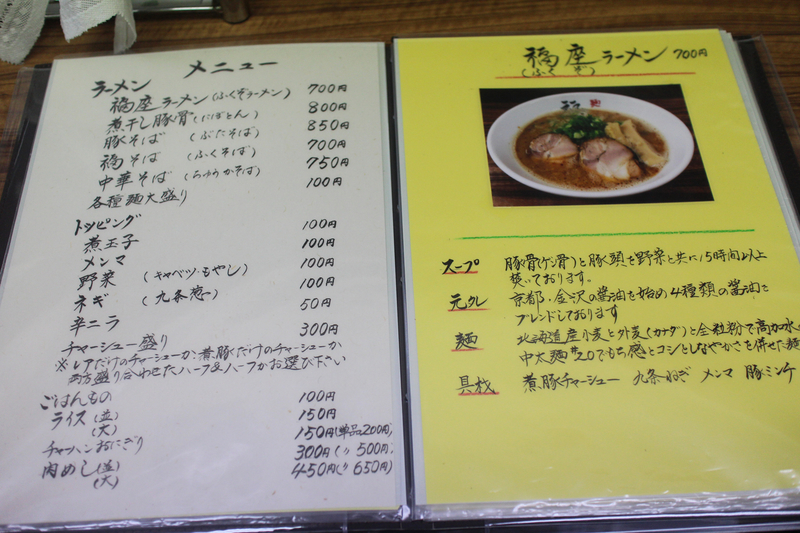 メニュー
ラーメン
福座ラーメン(ふくぞラーメン) 700円
煮干し豚骨(にぼとん) 800円
豚そば (ぶたそば) 850円
福そば (ふくそば) 700円
中華そば (ちゅうかそば) 750円
各種麺大盛り 100円
トッピング
煮玉子 100円
メンマ 100円
野菜 (キャベツ・もやし) 100円
ネギ (九条葱) 100円
辛ニラ 50円
チャーシュー盛り 300円
※レアだけのチャーシューか、煮豚だけのチャーシューか
両方盛り合わせたハーフ&ハーフかお選び下さい
ごはんもの
ライス(並) 100円
(大) 150円
チャーハンおにぎり 150円(単品200円)
肉めし(並) 300円(〃500円)
(大) 450円(〃650円)
福座ラーメン 700円
(ふくぞ)
スープ 豚骨(ゲン骨)と豚頭を野菜と共に15時間以上
焚いております。
元タレ 京都・金沢の醤油を始め4種類の醤油を
ブレンドしております
麺 北海道産小麦と外麦(カナダ)と全粒粉で高加水
中太麺#20でもち感とコシとしなやかさを併せた麺
具材 煮豚チャーシュー 九条ねぎ メンマ 豚ミンチ